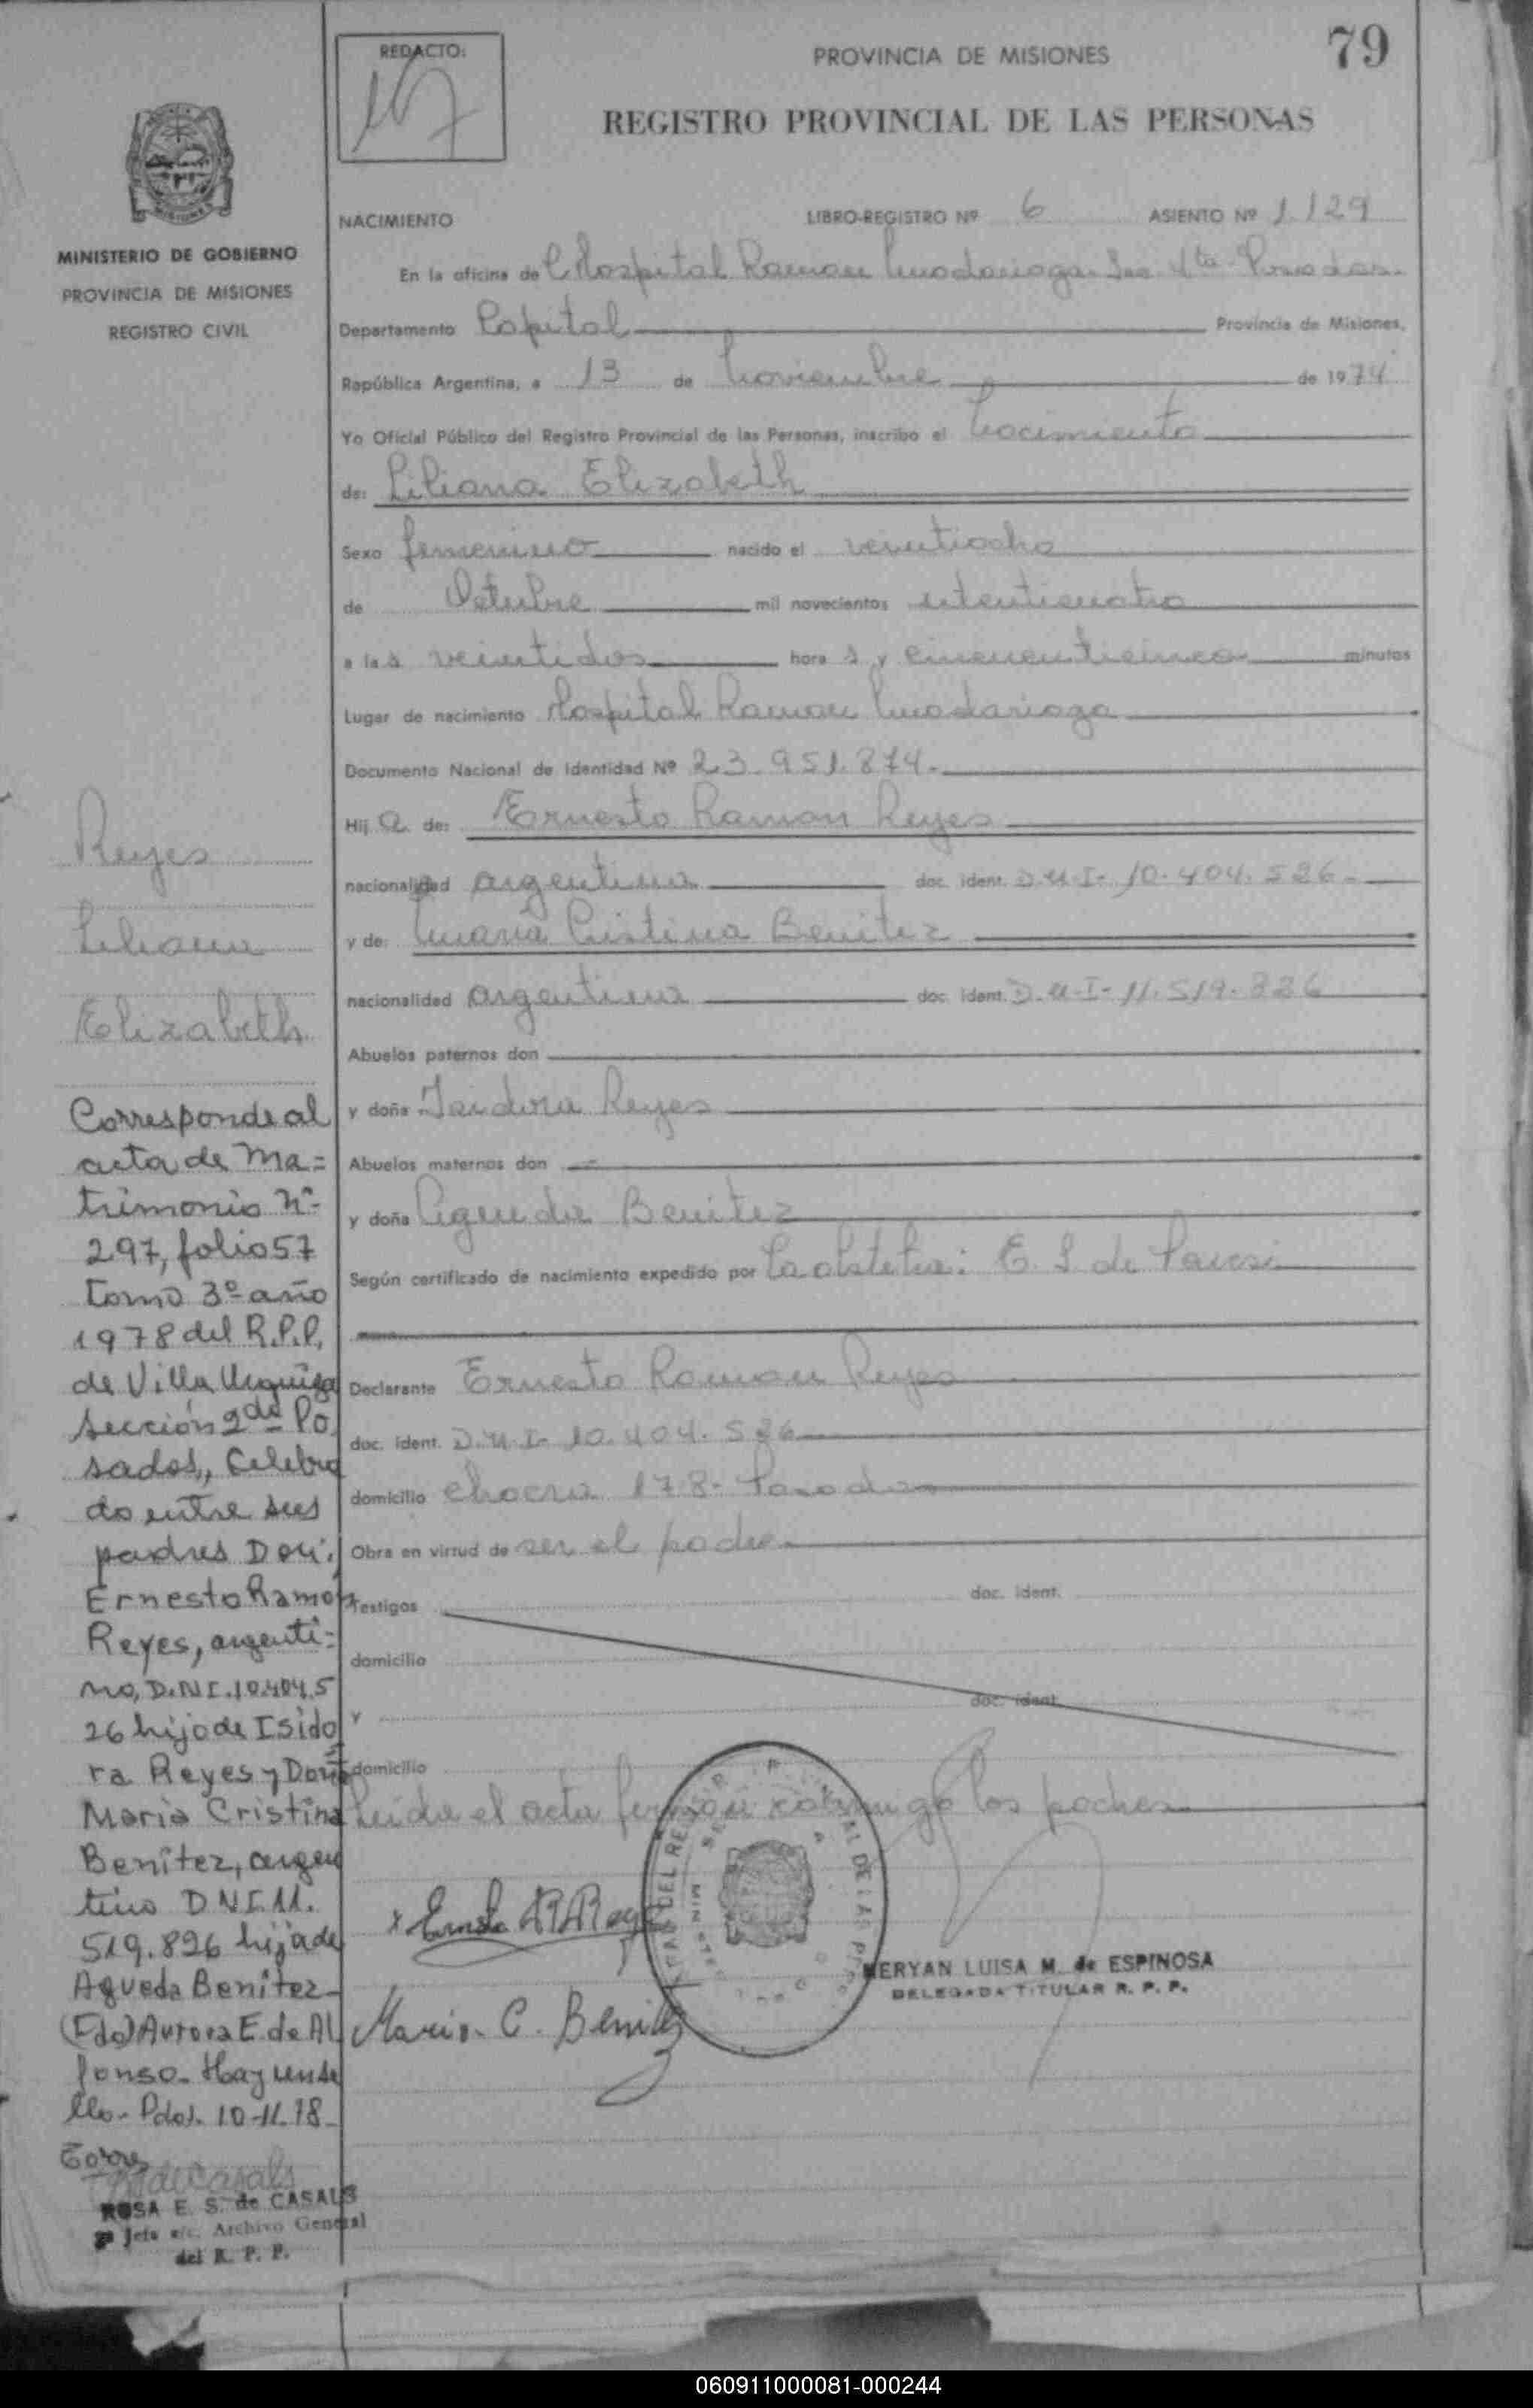 79
REDACTO:
PROVINCIA DE MISIONES
REGISTRO PROVINCIAL DE LAS PERSONAS
MINISTERIO DE GOBIERNO
PROVINCIA DE MISIONES
REGISTRO CIVIL
NACIMIENTO LIBRO-REGISTRO Nº 6 ASIENTO Nº 1.129
En la oficina de Hospital Ramon Madariaga Sec 4ta Posadas
Departamento Capital Provincia de Misiones,
República Argentina, a 13 de Noviembre de 1974
Yo Oficial Público del Registro Provincial de las Personas, inscribo el Nacimiento
de: Liliana Elizabeth
Sexo femenino nacido el veintiocho
de Octubre mil novecientos setenticuatro
a las veintidos horas y cincuenticinco minutos
Lugar de nacimiento Hospital Ramon Madariaga
Documento Nacional de Identidad Nº 23.951.874.
Hija de: Ernesto Ramon Reyes
nacionalidad argentina doc. ident. D.N.I- 10.404.526-
y de: Maria Cristina Benitez
nacionalidad argentina doc. ident. D.N-I- 11.519.826
Abuelos paternos don
y doña Isidora Reyes
Abuelos maternos don
y doña Agueda Benitez
Según certificado de nacimiento expedido por La obstetra: E. S. de
Declarante Ernesto Ramon Reyes
doc. ident. D.N.I- 10.404.526
domicilio chacra 178- Posadas
Obra en virtud de ser el padre.
Testigos doc. ident.
domicilio
y doc. ident.
domicilio
Leida el acta firman conmigo los padres
Maria. C. Benitez
MERYAN LUISA M. de ESPINOSA
DELEGADA TITULAR R. P. P.
Reyes
Liliana
Elizabeth
Corresponde al
acta de Ma=
trimonio Nº
297, folio 57
tomo 3º año
1978 del R.P.P.
de Villa Urquiza
sección 2da Po
sadas, Celebra
do entre sus
padres Don:
Ernesto Ramon
Reyes, argenti=
no, D.N.I. 10.404.5
26 hijo de Isido
ra Reyes y Doña
Maria Cristina
Benitez, argen
tina D N I. 11.
519.826 hija de
Agueda Benitez-
(Fdo) Aurora E. de Al
fonso- Hay un se
llo- Pdas. 10-11-78-
ROSA E. S. de CASALS
Jefa a/c. Archivo General
del R. P. P.
060911000081-000244